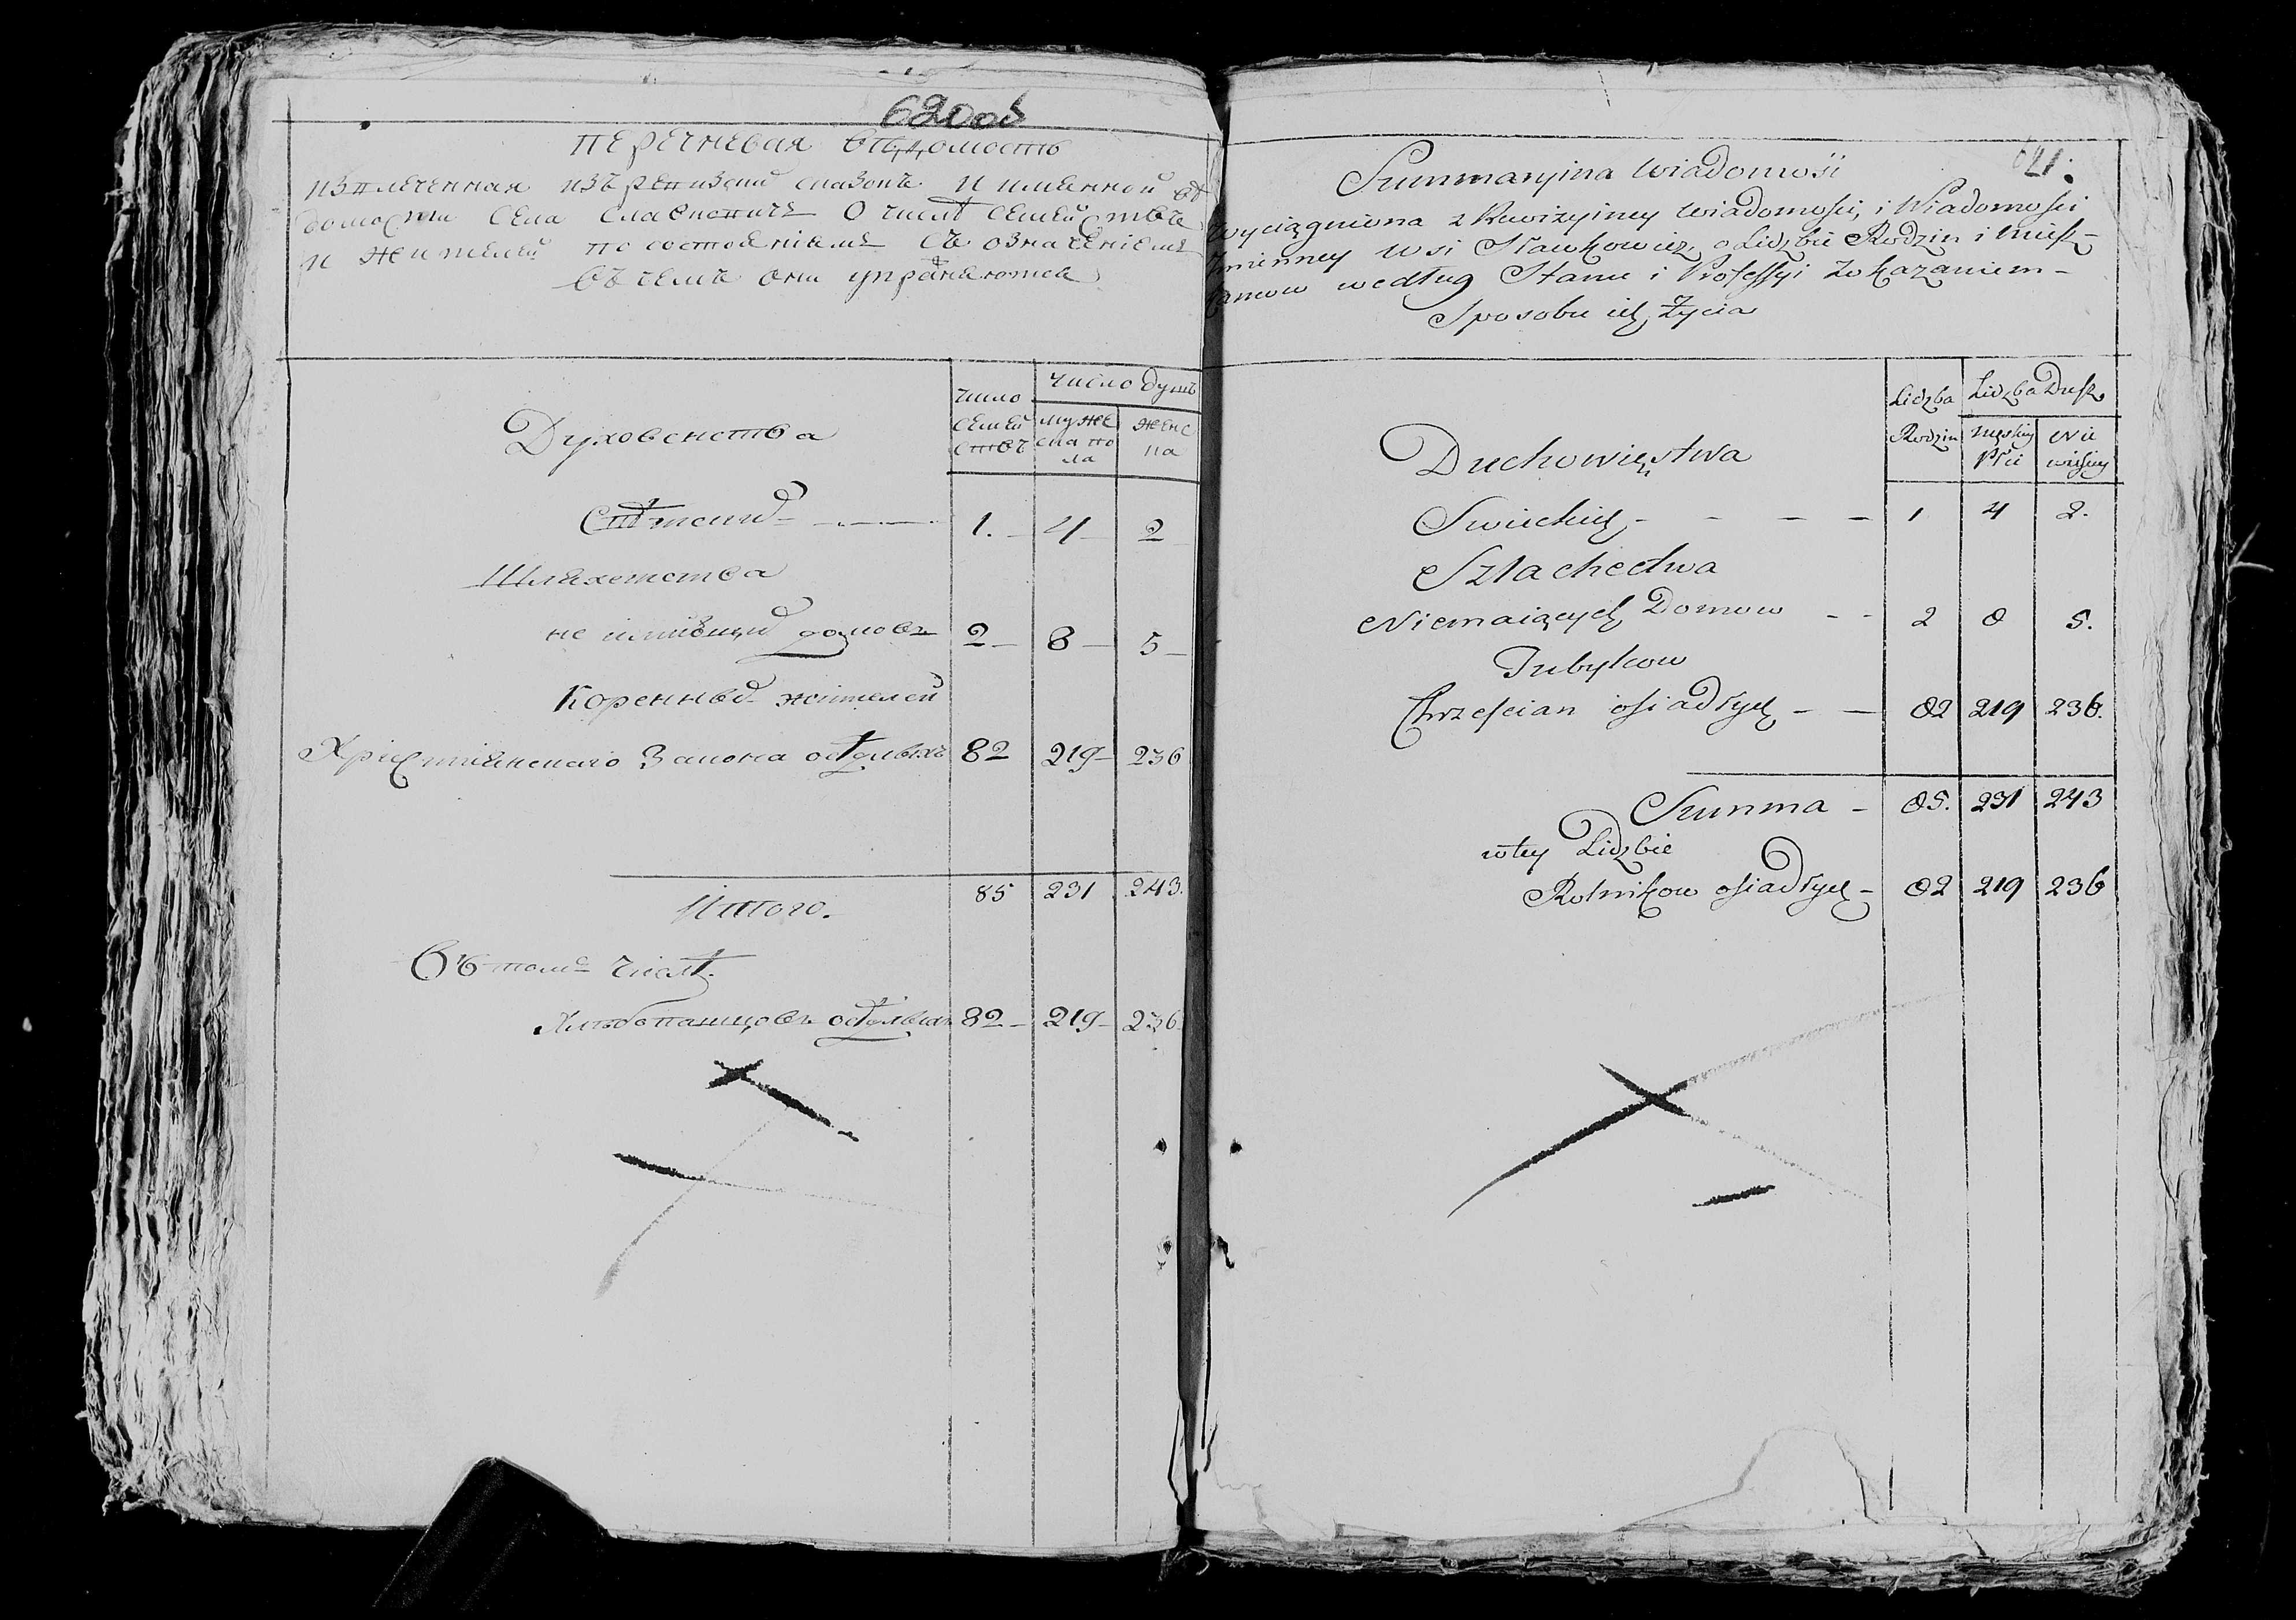 620 об
перечневая вѣдомость
извлеченная изъ ревизской сказокъ и имянной вѣ
домости села Славковичъ о числѣ семействъ
и жителей по состояніямъ съ означеніемъ
въ чемъ они упражняются
число семействъ
число душъ
мужеска пола
женска
Духовенства
Свѣтскихъ 1. 4 2
Шляхетства
не имѣющихъ домовъ 2 8 5
Коренныхъ жителей
Христіянскаго Закона осѣдлыхъ 82 219 236
Итого. 85 231 243.
Въ томъ числѣ
Хлѣбопашцовъ осѣдлыхъ 82 219 236
621.
Summaryina Wiadomość
wyciągniona z Rewizyiney Wiadomości, i Wiadomości
Imienney wsi Sławkowicz o Lidzbie Rodzin i miesz-
kancow według Stanu i Professyi z okazaniem
Sposobu ich Życia
Lidzba Rodzin
Lidzba Dusz
męskiey Płci
Niewieściey
Duchowięstwa
Swieckich 1 4 2.
Szlachectwa
Niemaiących Domow 2 8 5.
Tubylcow
Chrześcian osiadłych 82 219 236.
Summa 85. 231 243
w tey Lidzbie
Rolnikow osiadłych 82 219 236